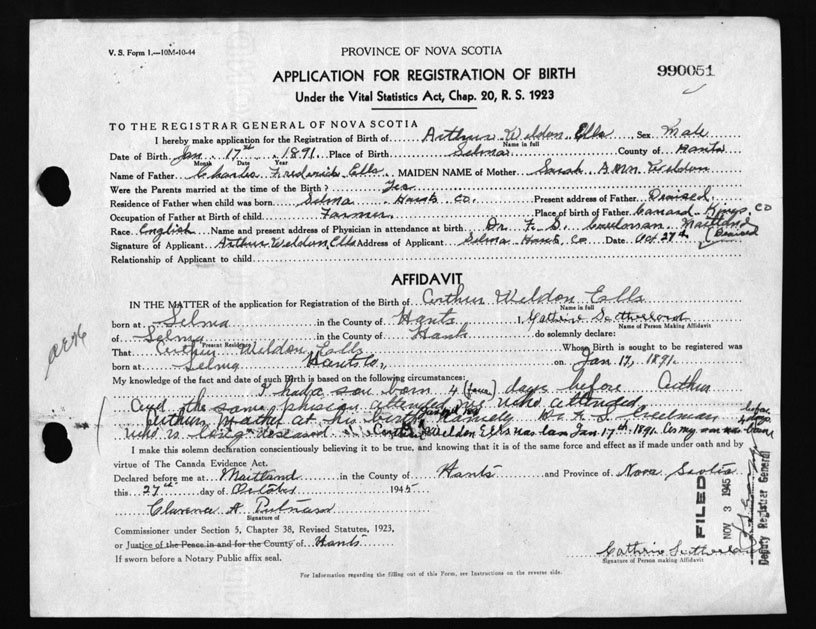 V. S. Form 1.—10M-10-44
PROVINCE OF NOVA SCOTIA
APPLICATION FOR REGISTRATION OF BIRTH
990051
Under the Vital Statistics Act, Chap. 20, R. S. 1923
TO THE REGISTRAR GENERAL OF NOVA SCOTIA
I hereby make application for the Registration of Birth of Arthur Weldon Ells Sex Male
Name in full
Date of Birth Jan 17th 1891 Place of Birth Selma County of Hants
Month Date Year
Name of Father Charles Frederick Ells MAIDEN NAME of Mother Sarah Ann Weldon
Were the Parents married at the time of the Birth? Yes
Residence of Father when child was born Selma Hants Co. Present address of Father
Occupation of Father at Birth of child Farmer Place of birth of Father Canard Kings Co
Race English Name and present address of Physician in attendance at birth Dr. F. S. Maitland
Signature of Applicant Arthur Weldon Ells Address of Applicant Selma Hants Co Date Oct 27
Relationship of Applicant to child
AFFIDAVIT
IN THE MATTER of the application for Registration of the Birth of Arthur Weldon Ells
Name in full
born at Selma in the County of Hants I,
Name of Person Making Affidavit
of Selma in the County of Hants do solemnly declare:
Present Residence
That Arthur Weldon Ells Whose Birth is sought to be registered was
born at Selma Hants Co., on Jan 17, 1891.
My knowledge of the fact and date of such Birth is based on the following circumstances:
I had a son born 4 (four) days before Arthur
and the same attended me who attended
Arthur mother at his birth namely Dr. F. S.
who is Weldon Ells was born Jan. 17th 1891 as my son was born
I make this solemn declaration conscientiously believing it to be true, and knowing that it is of the same force and effect as if made under oath and by
virtue of The Canada Evidence Act.
Declared before me at Maitland in the County of Hants and Province of Nova Scotia
this 27th day of October 1945
Clarence A. Putnam
Signature of
Commissioner under Section 5, Chapter 38, Revised Statutes, 1923,
or Justice of the Peace in and for the County of Hants
If sworn before a Notary Public affix seal.
Signature of Person making Affidavit
FILED
NOV 3 1945
Deputy Registrar General
For Information regarding the filling out of this Form, see Instructions on the reverse side.